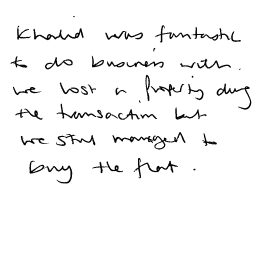 Khalid was fantastic
to do business with.
we lost a property during
the transaction but
we still managed to
buy the flat.